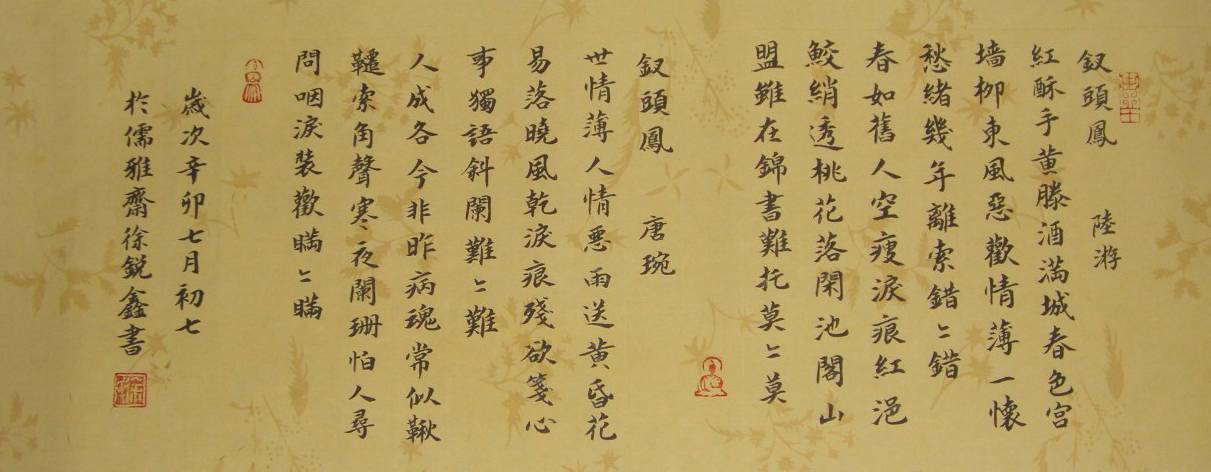 釵頭鳳 陸游
紅酥手黄滕酒滿城春色宮
墙柳東風惡歡情薄一懷
愁緒幾年離索錯〻錯
春如舊人空瘦淚痕紅浥
鮫綃透桃花落閑池閣山
盟雖在錦書難托莫〻莫
釵頭鳳 唐琬
世情薄人情惡雨送黄昏花
易落曉風乾淚痕殘欲箋心
事獨語斜闌難〻難
人成各今非昨病魂常似鞦
韆索角聲寒夜闌珊怕人尋
問咽淚裝歡瞞〻瞞
歲次辛卯七月初七
於儒雅齋徐銳鑫書